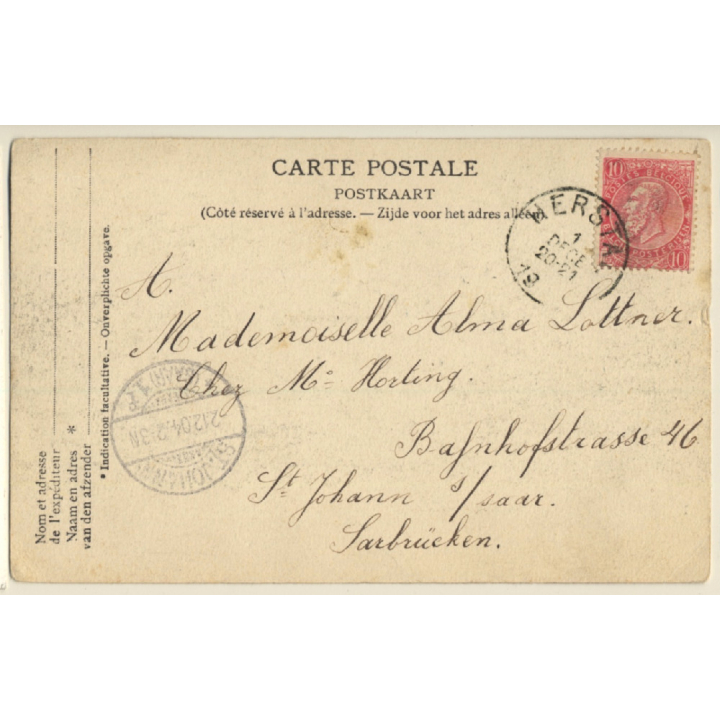 CARTE POSTALE
POSTKAART
(Côté réservé à l'adresse. — Zijde voor het adres allee
10 10
POSTES BELGIQUE
HERSTA
1
DECE
20-21
19
A.
Mademoiselle Alma Lottner.
Chez Mr Horting.
Bahnhofstrasse 46
St Johann s/saar.
Sarbrücken.
ST. JOHANN
(SAAR) 1
2.12.04. 2-3N
* Indication facultative. — Onverplichte opgave.
Nom et adresse
de l'expéditeur
Naam en adres *
van den afzender